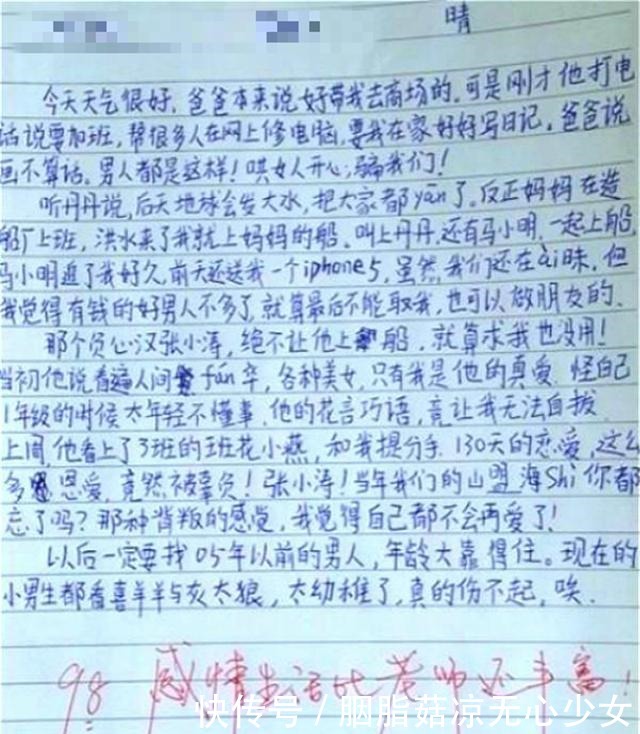 晴
今天天气很好，爸爸本来说好带我去商场的，可是刚才他打电
话说要加班，帮很多人在网上修电脑，要我在家好好写日记。爸爸说
画不算话。男人都是这样！哄女人开心，骗我们！
听丹丹说，后天地球会发大水，把大家都yān了。反正妈妈在造
船厂上班，洪水来了我就上妈妈的船，叫上丹丹，还有马小明，一起上船，
马小明追了我好久，前天还送我一个iphone5，虽然，我们还在ài昧，但
我觉得有钱的好男人不多了，就算最后不能取我，也可以做朋友的。
那个负心汉张小涛，绝不让他上船，就算求我也没用！
当初他说看遍人间fán华，各种美女，只有我是他的真爱，怪自己
1年级的时候太年轻不懂事，他的花言巧语，竟让我无法自拔
上周，他看上了3班的班花小燕，和我提分手，130天的恋爱，这么
多恩爱，竟然被辜负！张小涛！当年我们的山盟海Shi你都
忘了吗？那种背叛的感觉，我觉得自己都不会再爱了！
以后一定要找05年以前的男人，年龄大靠得住。现在的
小男生都看喜羊羊与灰太狼，太幼稚了，真的伤不起，唉．
98 感情生活比老师还丰富！
快传号／胭脂菇凉无心少女